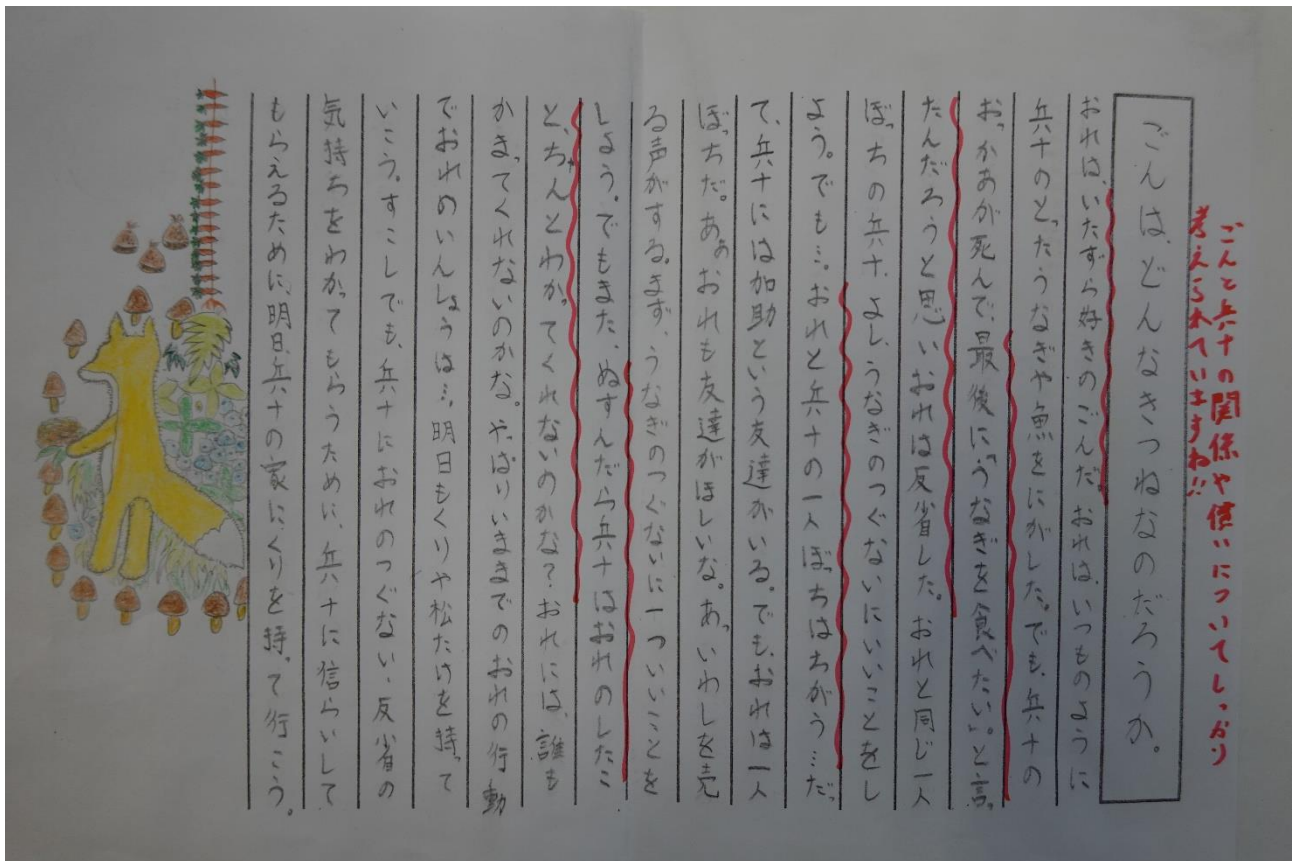 ごんと兵十の関係や償いについてしっかり
考えられていますね!!
ごんは、どんなきつねなのだろうか。
おれは、いたずら好きのごんだ。おれは、いつものように
兵十のとったうなぎや魚をにがした。でも、兵十の
おっかあが死んで、最後に「うなぎを食べたい。」と言っ
たんだろうと思いおれは反省した。おれと同じ一人
ぼっちの兵十、よし、うなぎのつぐないにいいことをし
よう。でも…。おれと兵十の一人ぼっちはちがう…だっ
て、兵十には加助という友達がいる。でも、おれは一人
ぼっちだ。あぁおれも友達がほしいな。あっ、いわしを売
る声がする。まず、うなぎのつぐないに一ついいことを
しよう。でもまた、ぬすんだら兵十はおれのしたこ
と、ちゃんとわかってくれないのかな?おれには、誰も
かまってくれないのかな。やっぱりいままでのおれの行動
でおれのいんしょうは…。明日もくりや松たけを持って
いこう。すこしでも、兵十におれのつぐない、反省の
気持ちをわかってもらうために、兵十に信らいして
もらえるために、明日、兵十の家にくりを持って行こう。